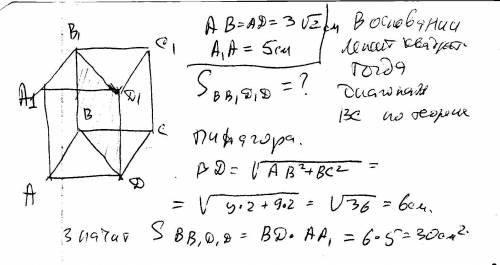 B₁
C₁
A₁
D₁
B
C
A
D
AB = AD = 3√2 см
A₁A = 5 см
S BB₁D₁D = ?
В основании
лежит квадрат.
Тогда
диагональ
BC по теореме
Пифагора.
BD = √AB² + BC² =
= √9·2 + 9·2 = √36 = 6 см.
Значит S BB₁D₁D = BD · AA₁ = 6·5 = 30 см².